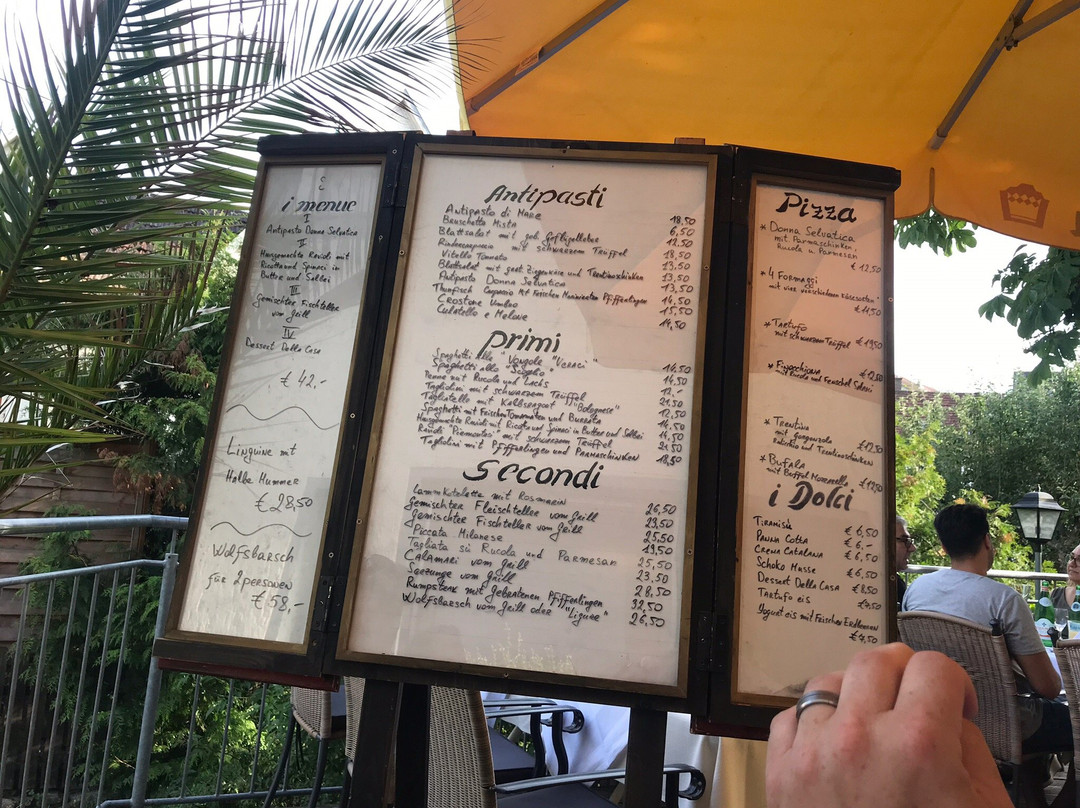 i menue
I
Antipasto Donna Selvatica
II
Hangemachte Ravioli mit
Ricotta und Spinaci in
Butter und Salbei
III
Gemischter Fischteller
vom Grill
IV
Dessert Della Casa
€ 42,-
Linguine mit
Halbe Hummer
€ 28,50
Wolfsbarsch
für 2 personen
€ 58,-
Antipasti
Antipasto di Mare 18,50
Bruschetta Mista 6,50
Blattsalat mit geb. Geflügelleber 12,50
Rindercarpaccio mit schwarzem Trüffel 18,50
Vitello Tonnato 13,50
Blattsalat mit geb. Ziegenkäse und Trentinoschinken 13,50
Antipasto Donna Selvatica 13,50
Thunfisch Carpaccio Mit Frischen Marinierten Pfifferlingen 14,50
Crostone Umbro 15,50
Culatello e Melone 14,50
Primi
Spaghetti Alle "Vongole "Veraci" 14,50
Spaghetti allo "Scoglio" 14,50
Penne mit Rucola und Lachs 12,-
Tagliolini mit schwarzem Trüffel 21,50
Tagliatelle mit Kalbsragout "Bolognese" 12,50
Spaghetti mit Frischen Tomamaten und Burrata 14,50
Hangemachte Ravioli mit Ricotta und Spinaci in Butter und Salbei 14,50
Ravioli "Piemontesi" mit schwarzem Trüffel 21,50
Tagliolini mit Pfifferlingen und Parmaschinken 18,50
Secondi
Lammkotelette mit Rosmarin 26,50
Gemischter Fleischteller vom Grill 23,50
Gemischter Fischteller vom Grill 25,50
Piccata Milanese 19,50
Tagliata su Rucola und Parmesan 25,50
Calamari vom Grill 23,50
Seezunge vom Grill 28,50
Rumpsteak mit gebratenen Pfifferlingen 32,50
Wolfsbarsch vom Grill oder "Ligure" 26,50
Pizza
* Donna Selvatica
mit Parmaschinken
Rucola u. Parmesan
€ 12,50
* 4 Formaggi
mit vier verschiedenen Käsesorten"
€ 11,50
* Tartufo
mit schwarzem Trüffel € 19,50
* Finocchiona € 12,50
mit Rucola und Fenchel Salami
* Trentina
mit Gorgonzola € 12,50
Radicchio und Trentinoschinken
* Bufala
mit Büffel Mozzarella € 12,50
i Dolci
Tiramisù € 6,50
Panna Cotta € 6,-
Crema Catalana € 6,50
Schoko Musse € 6,50
Dessert Della Casa € 8,50
Tartufo eis € 7,50
Yogurteis mit Frischen Erdbeeren
€ 7,50